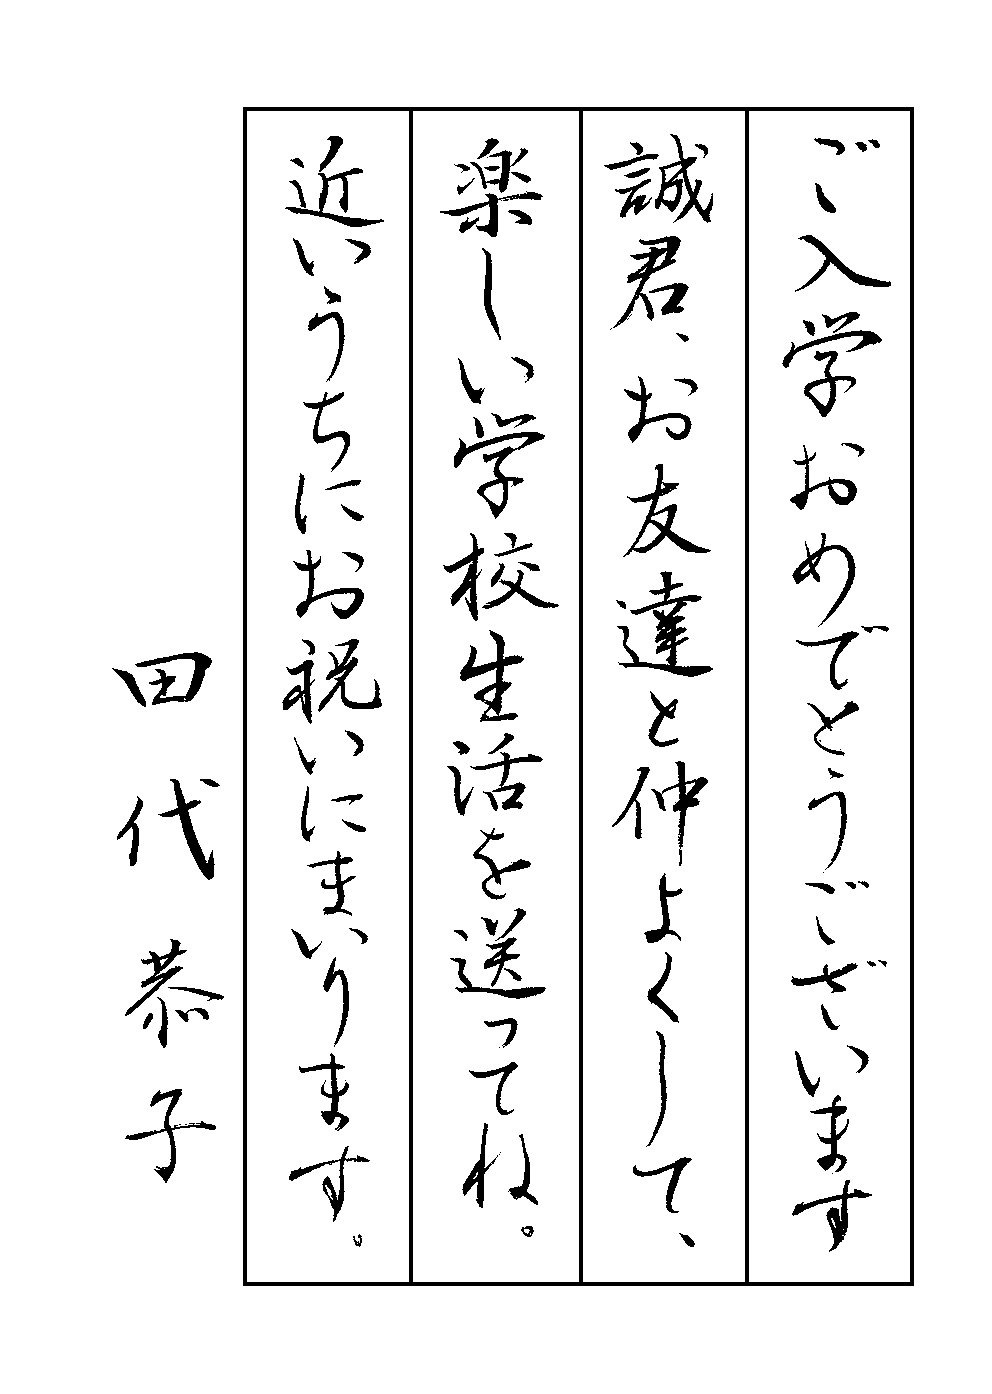 ご入学おめでとうございます
誠君、お友達と仲よくして、
楽しい学校生活を送ってね。
近いうちにお祝いにまいります。
田代恭子